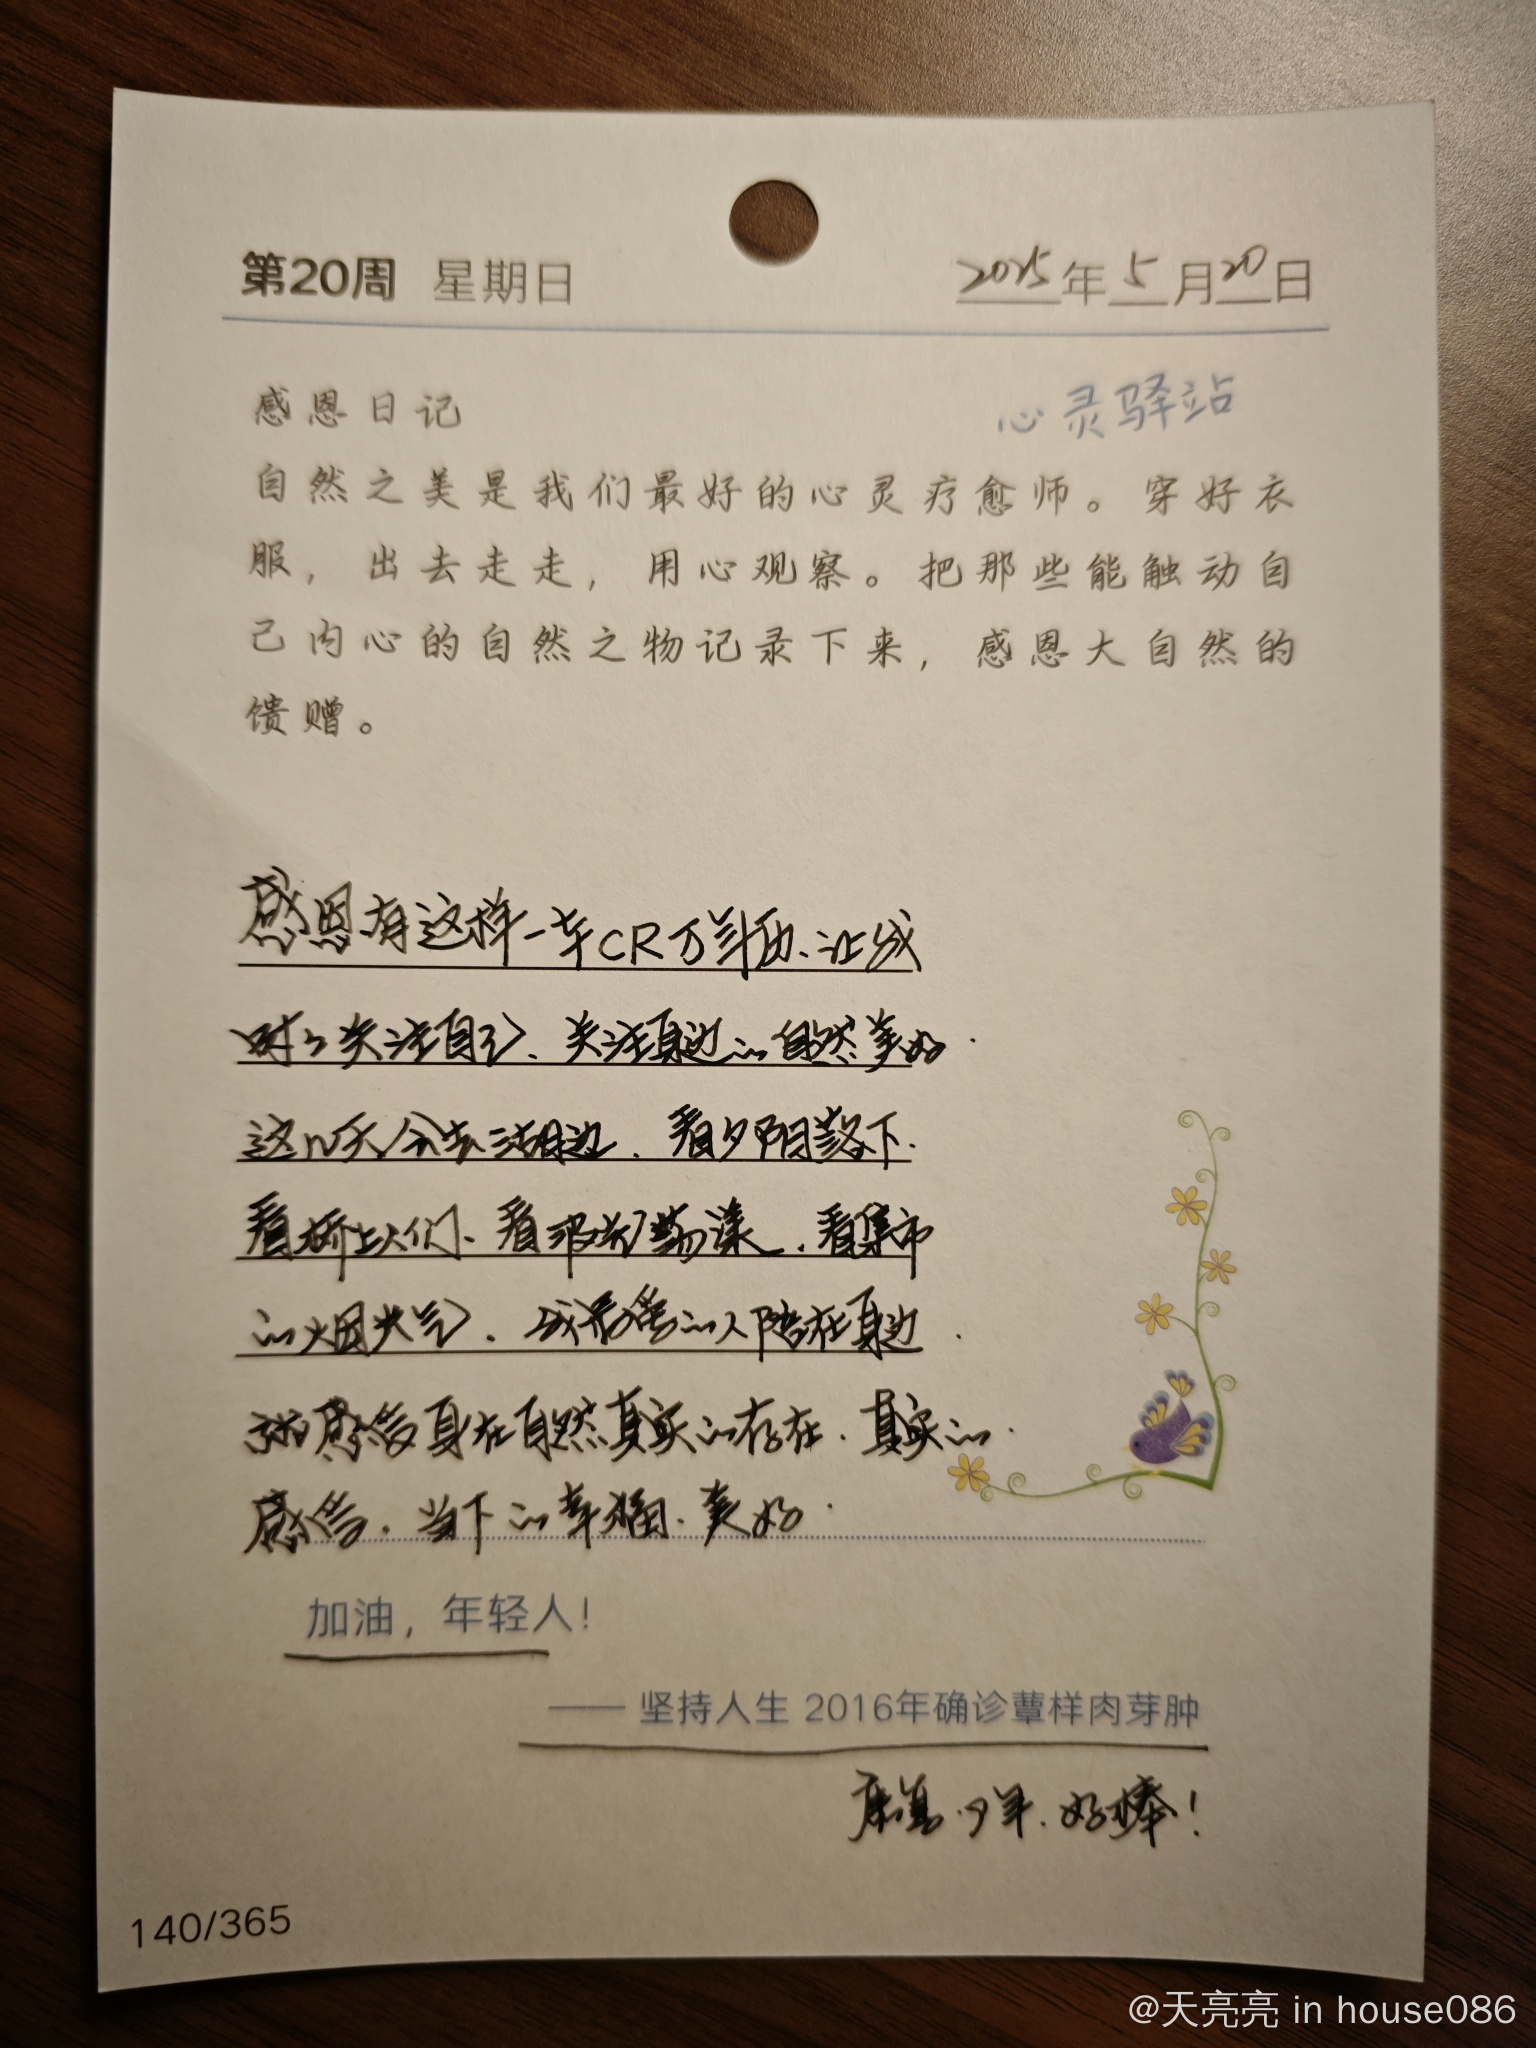 第20周 星期日 2025年5月20日
感恩日记 心灵驿站
自然之美是我们最好的心灵疗愈师。穿好衣
服，出去走走，用心观察。把那些能触动自
己内心的自然之物记录下来，感恩大自然的
馈赠。
感恩有这样一本CR万年历、让我
时时关注自己、关注身边的自然美好.
这几天会去湖边.看夕阳落下.
看桥上人们、看波光荡漾.看集市
的烟火气.我爱的人陪在身边.
感受身在自然真实的存在.真实的.
感受.当下的幸福.美好.
加油，年轻人!
—— 坚持人生 2016年确诊蕈样肉芽肿
康复.少年.好棒!
140/365
@天亮亮 in house086